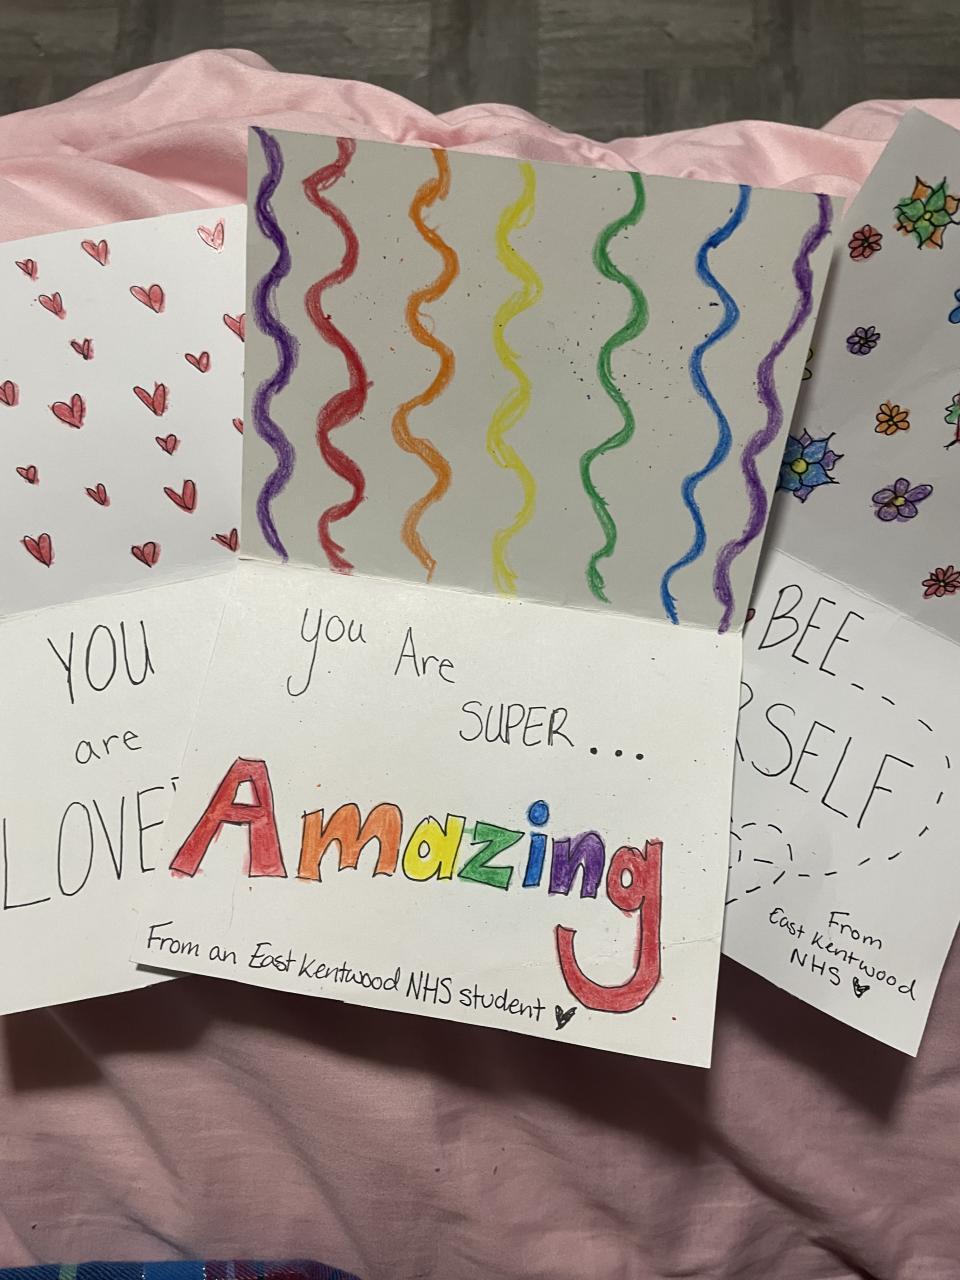 YOU
are
LOVE
you Are
SUPER...
Amazing
From an East Kentwood NHS student
BEE
RSELF
From
East Kentwood
NHS